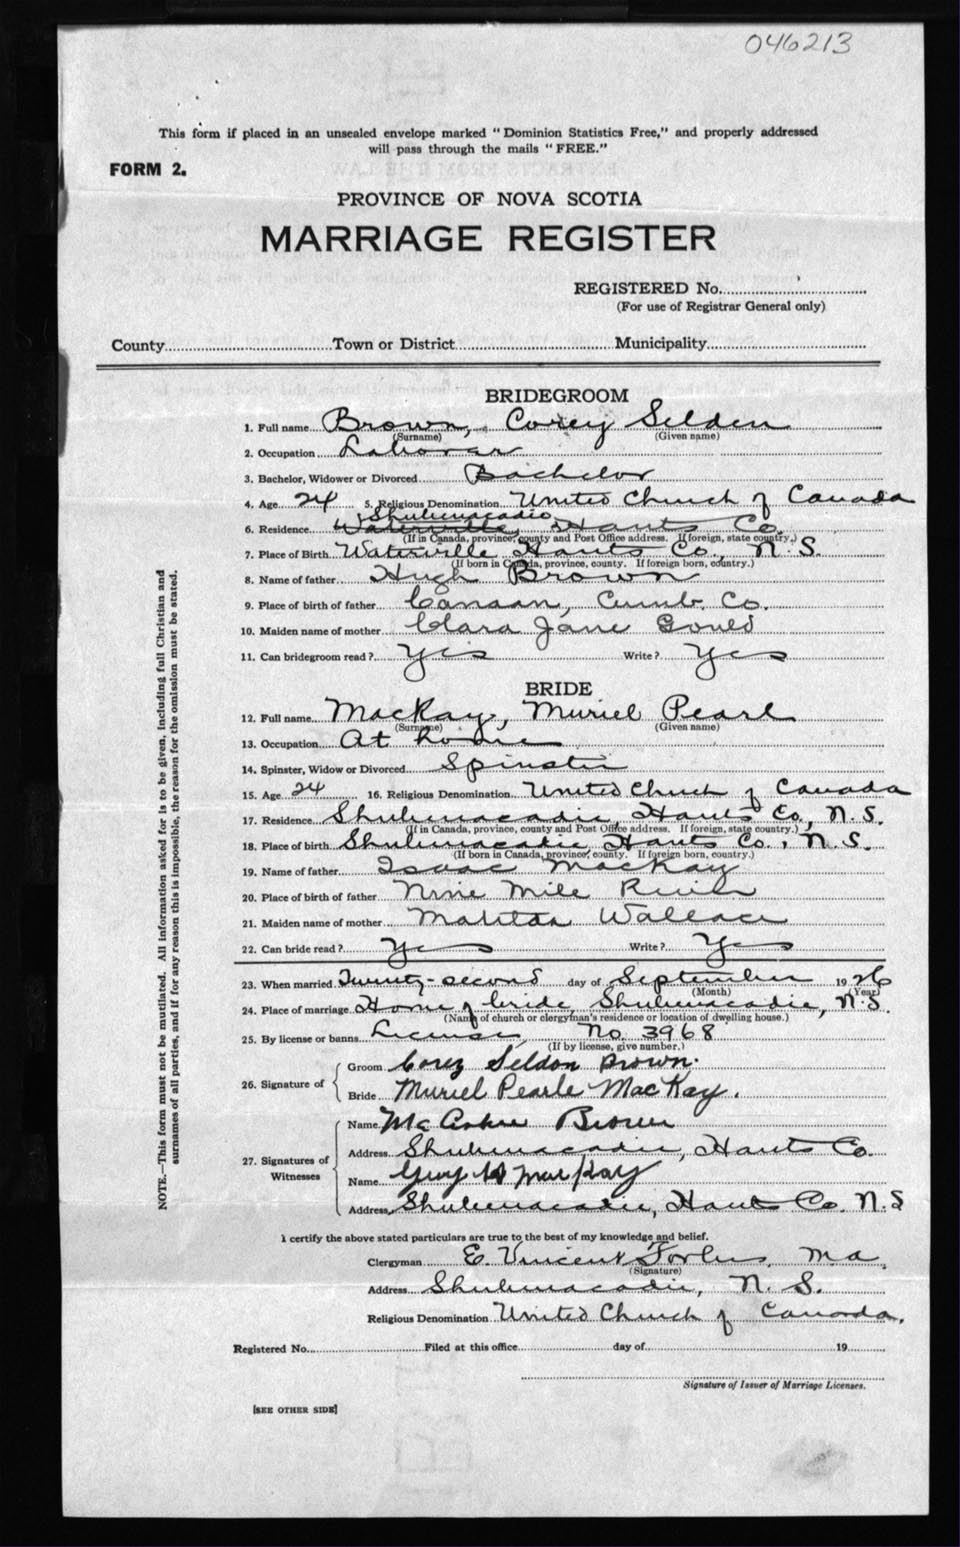 046213
This form if placed in an unsealed envelope marked "Dominion Statistics Free," and properly addressed
will pass through the mails "FREE."
FORM 2.
PROVINCE OF NOVA SCOTIA
MARRIAGE REGISTER
REGISTERED No.
(For use of Registrar General only)
County Town or District Municipality
BRIDEGROOM
1. Full name Brown, Corey Selden
(Surname) (Given name)
2. Occupation Laborer
3. Bachelor, Widower or Divorced Bachelor
4. Age 24 5. Religious Denomination United Church of Canada
Shubenacadie
6. Residence Waterville, Hants Co.
(If in Canada, province, county and Post Office address. If foreign, state country.)
7. Place of Birth Waterville Hants Co., N.S.
(If born in Canada, province, county. If foreign born, country.)
8. Name of father Hugh Brown
9. Place of birth of father Canaan, Cumb. Co.
10. Maiden name of mother Clara Jane Gould
11. Can bridegroom read? Yes Write? Yes
BRIDE
12. Full name MacKay, Muriel Pearl
(Surname) (Given name)
13. Occupation At home
14. Spinster, Widow or Divorced Spinster
15. Age 24 16. Religious Denomination United Church of Canada
17. Residence Shubenacadie, Hants Co., N.S.
(If in Canada, province, county and Post Office address. If foreign, state country.)
18. Place of birth Shubenacadie Hants Co., N.S.
(If born in Canada, province, county. If foreign born, country.)
19. Name of father Isaac MacKay
20. Place of birth of father Nine Mile River
21. Maiden name of mother Matilda Wallace
22. Can bride read? Yes Write? Yes
23. When married Twenty-second day of September 1926
(Month) (Year)
24. Place of marriage Home of bride, Shubenacadie, N.S.
(Name of church or clergyman's residence or location of dwelling house.)
25. By license or banns License No. 3968
(If by license, give number.)
26. Signature of
Groom Corey Seldon Brown.
Bride Muriel Pearle MacKay.
27. Signatures of Witnesses
Name Brown
Address Shubenacadie, Hants Co.
Name Guy MacKay
Address Shubenacadie, Hants Co. N.S
I certify the above stated particulars are true to the best of my knowledge and belief.
Clergyman E. Vincent Forbes, M.A.
(Signature)
Address Shubenacadie, N.S.
Religious Denomination United Church of Canada.
Registered No. Filed at this office day of 19
Signature of Issuer of Marriage Licenses.
[SEE OTHER SIDE]
NOTE.—This form must not be mutilated. All information asked for is to be given, including full Christian and
surnames of all parties, and if for any reason this is impossible, the reason for the omission must be stated.